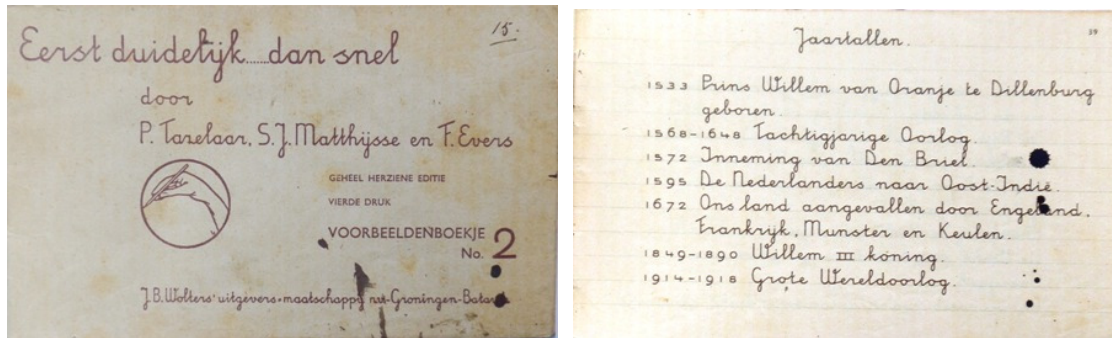 15.
Eerst duidelijk......dan snel
door
P. Tazelaar, S.J. Matthijsse en F. Evers
GEHEEL HERZIENE EDITIE
VIERDE DRUK
VOORBEELDENBOEKJE
No. 2
J.B. Wolters' uitgevers-maatschappij n.v.-Groningen-Batavia
Jaartallen.
1533 Prins Willem van Oranje te Dillenburg
geboren.
1568-1648 Tachtigjarige Oorlog.
1572 Inneming van Den Briel.
1595 De Nederlanders naar Oost-Indië.
1672 Ons land aangevallen door Engeland,
Frankrijk, Munster en Keulen.
1849-1890 Willem III koning.
1914-1918 Grote Wereldoorlog.